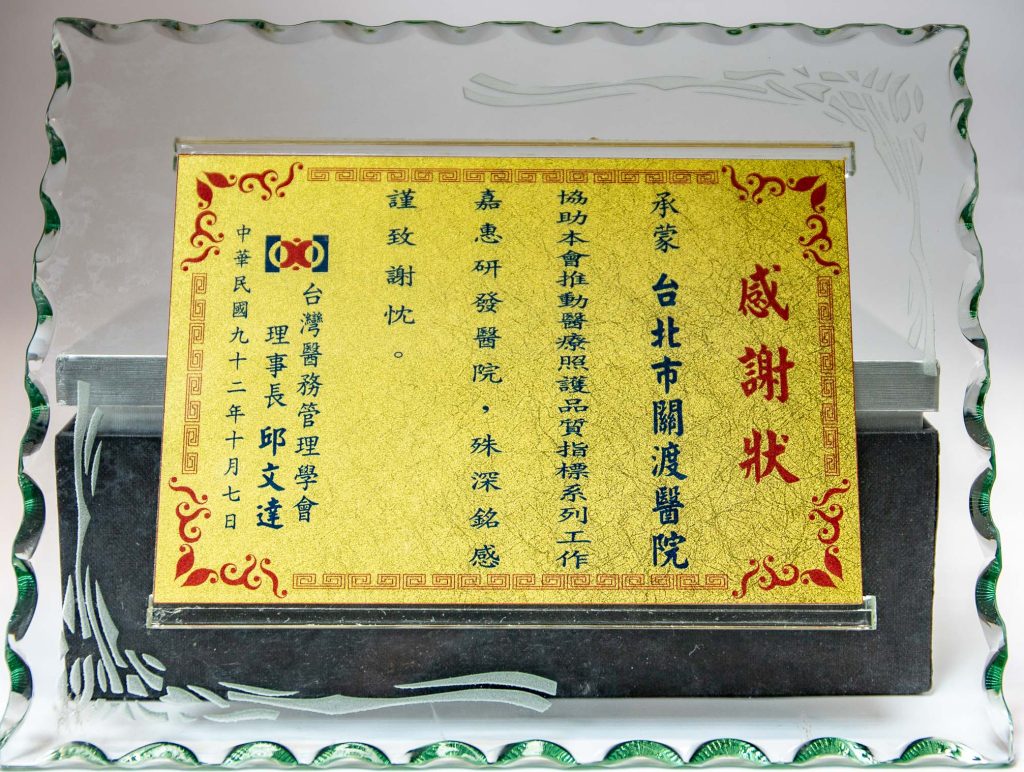 感謝狀
承蒙 台北市關渡醫院
協助本會推動醫療照護品質指標系列工作
嘉惠研發醫院，殊深銘感
謹致謝忱。
台灣醫務管理學會
理事長 邱文達
中華民國九十二年十月七日